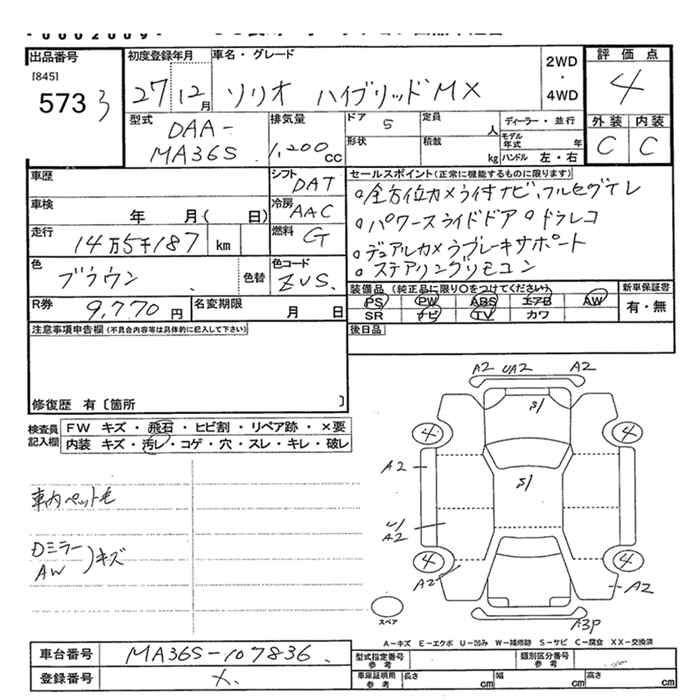 出品番号
[845]
573 3
初度登録年月
27 12月
車名・グレード
ソリオ ハイブリッドMX
2WD
・
4WD
評価点
4
外装 内装
C C
型式
DAA-
MA36S
排気量
1,200cc
ドア 5
形状
定員 人
積載 kg
ディーラー・並行
モデル年式 年
ハンドル 左・右
車歴
シフト DAT
車検 年 月( 日)
冷房 AAC
走行 14万5千187 km
燃料 G
色 ブラウン 色替
色コード ZVS
R券 9,770円
名変期限 月 日
セールスポイント(正常に機能するものに限ります)
。全方位カメラ付ナビ、フルセグTV
。パワースライドドア 。ドラレコ
。デュアルカメラブレーキサポート
。ステアリングリモコン
装備品 (純正品に限り○をつけてください)
PS PW ABS エアB AW
SR ナビ TV カワ
新車保証書
有・無
後日品
注意事項申告欄(不具合内容等は具体的に記入して下さい)
修復歴 有〔箇所 〕
検査員記入欄
FW キズ・飛石・ヒビ割・リペア跡・×要
内装 キズ・汚レ・コゲ・穴・スレ・キレ・破レ
車内ペット毛
Dミラー
AW
キズ
A2 UA2 A2
S1
4 4
A2
S1
U1
A2
4 4
A2 A2
A3P
スペア
A-キズ E-エクボ U-凹み W-補修跡 S-サビ C-腐食 XX-交換済
車台番号 MA36S-107836
登録番号 ×
型式指定番号 参考
類別区分番号 参考
車庫証明用 参考 長さ cm 幅 cm 高さ cm